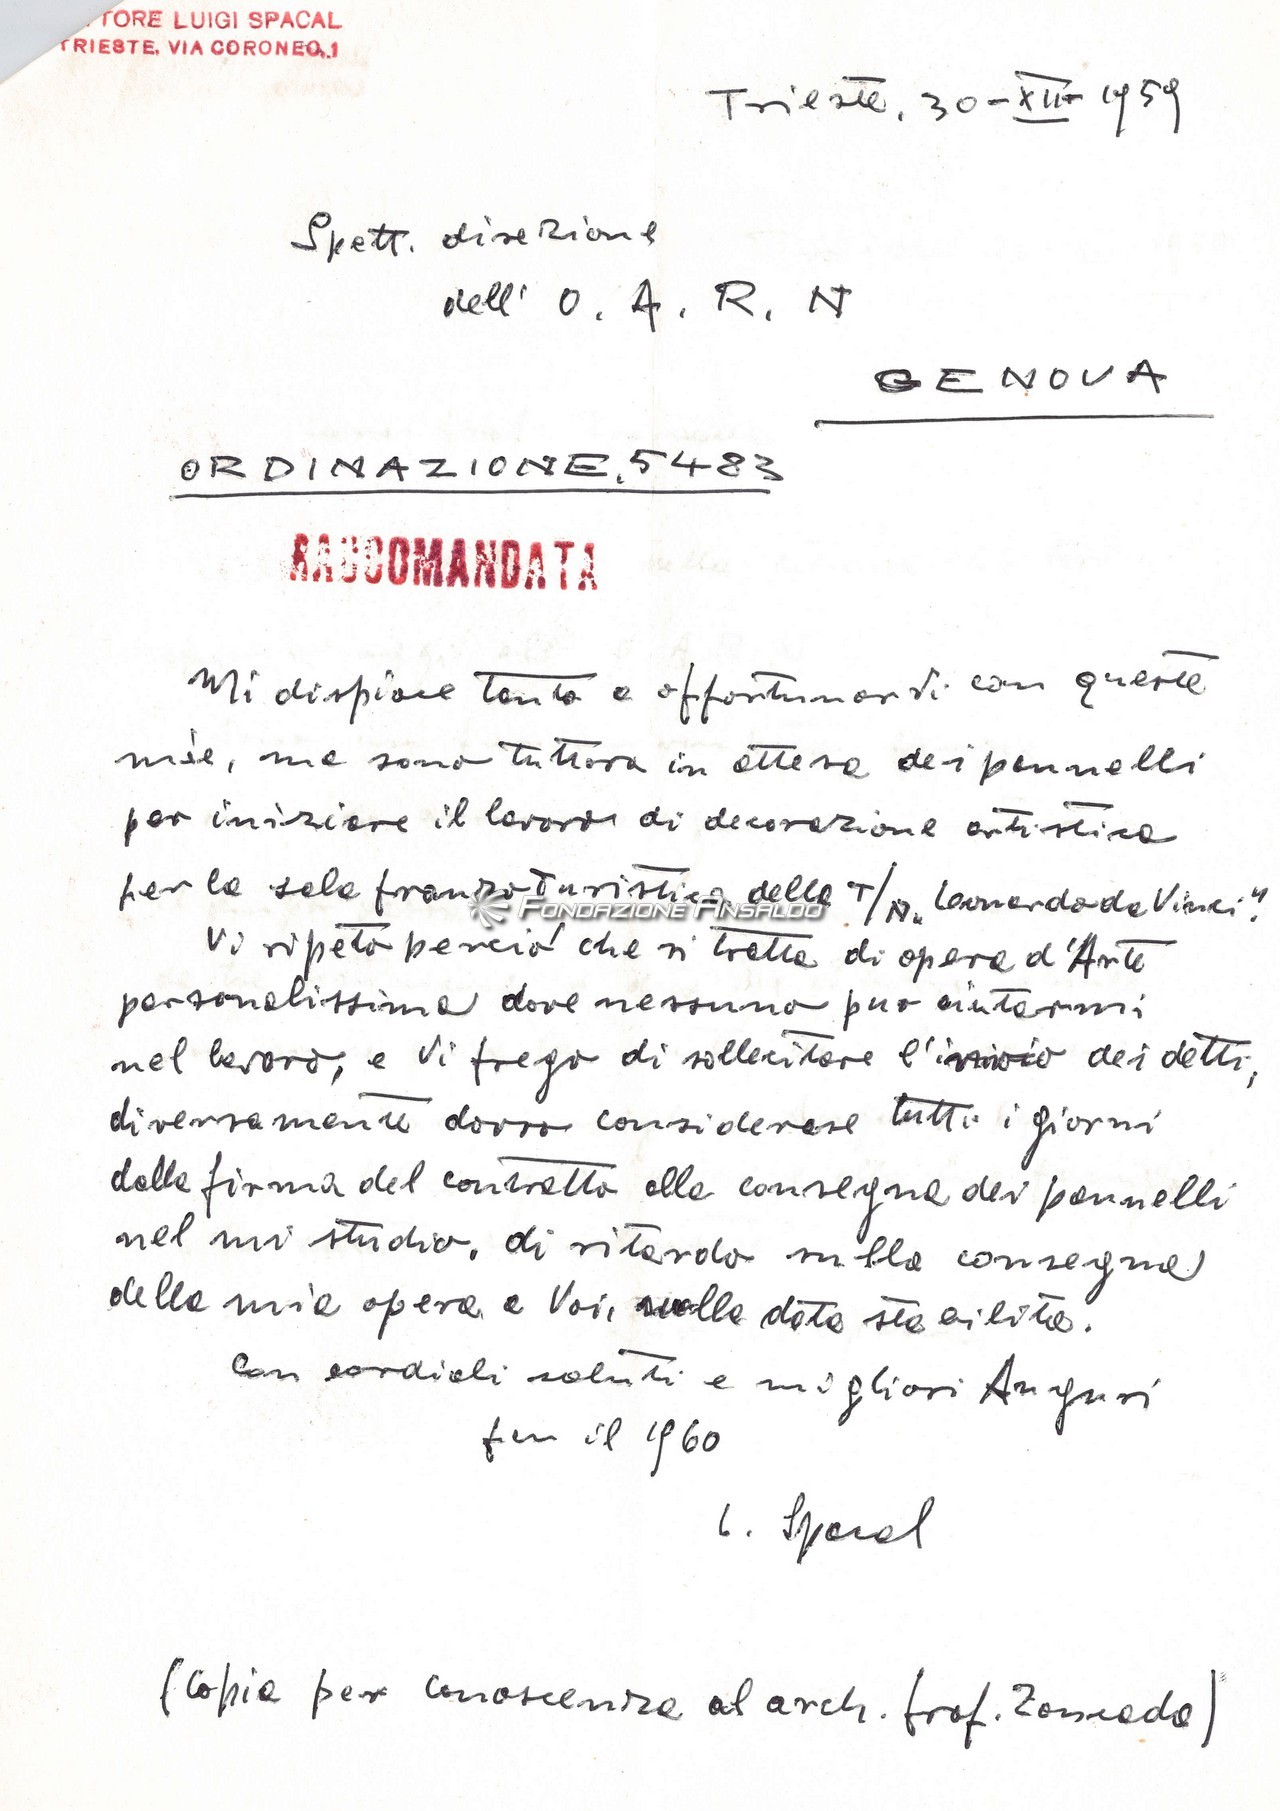 TORE LUIGI SPACAL
TRIESTE, VIA CORONEO, 1
Trieste, 30-XII-1959
Spett. direzione
dell' O. A. R. N
GENOVA
ORDINAZIONE. 5483
RACCOMANDATA
Mi dispiace tanto a opportunarvi con queste
mie, ma sono tuttora in attesa dei pannelli
per iniziare il lavoro di decorazione artistica
per la sala pranzo turistica della T/N „Leonardo da Vinci".
FONDAZIONE ANSALDO
Vi ripeto perciò che si tratta di opera d'Arte
personalissima dove nessuno può aiutarmi
nel lavoro, e Vi prego di sollecitare l'invio dei detti,
diversamente dovrò considerare tutti i giorni
dalla firma del contratto alla consegna dei pannelli
nel mi studio, di ritardo sulla consegna
della mia opera a Voi, nella data stabilita.
Con cordiali saluti e migliori Auguri
per il 1960
L. Spacal
(Copia per conoscenza al arch. prof. Zoncada)